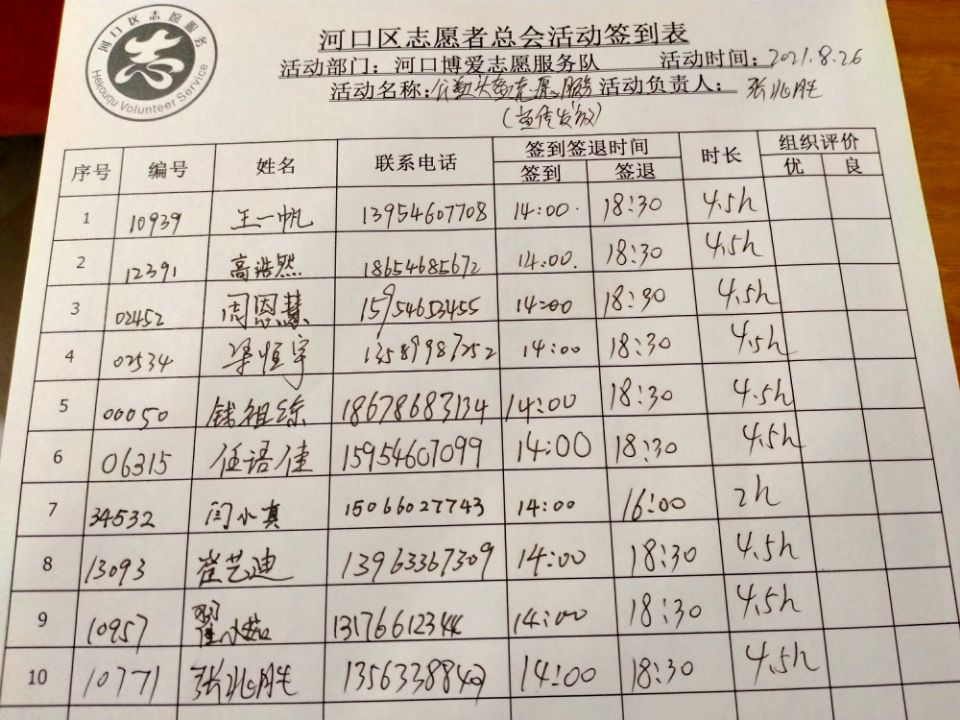 河口区志愿服务
志
Hekouqu Volunteer Service
河口区志愿者总会活动签到表
活动部门：河口博爱志愿服务队 活动时间：2021.8.26
活动名称：志愿服务 活动负责人：张兆胜
（宣传发放）
序号 编号 姓名 联系电话 签到签退时间 时长 组织评价
签到 签退 优 良
1 10939 王一帆 13954607708 14:00 18:30 4.5h
2 12391 高浩然 18654685672 14:00 18:30 4.5h
3 02452 周恩慧 15954653455 14:00 18:30 4.5h
4 02534 梁恒宇 13589987252 14:00 18:30 4.5h
5 00050 钱祖综 18678683134 14:00 18:30 4.5h
6 06315 任语佳 15954607099 14:00 18:30 4.5h
7 34532 闫小真 15066027743 14:00 16:00 2h
8 13093 崔艺迪 13963367309 14:00 18:30 4.5h
9 10957 翟小茹 13176612344 14:00 18:30 4.5h
10 10771 张兆胜 13563388409 14:00 18:30 4.5h